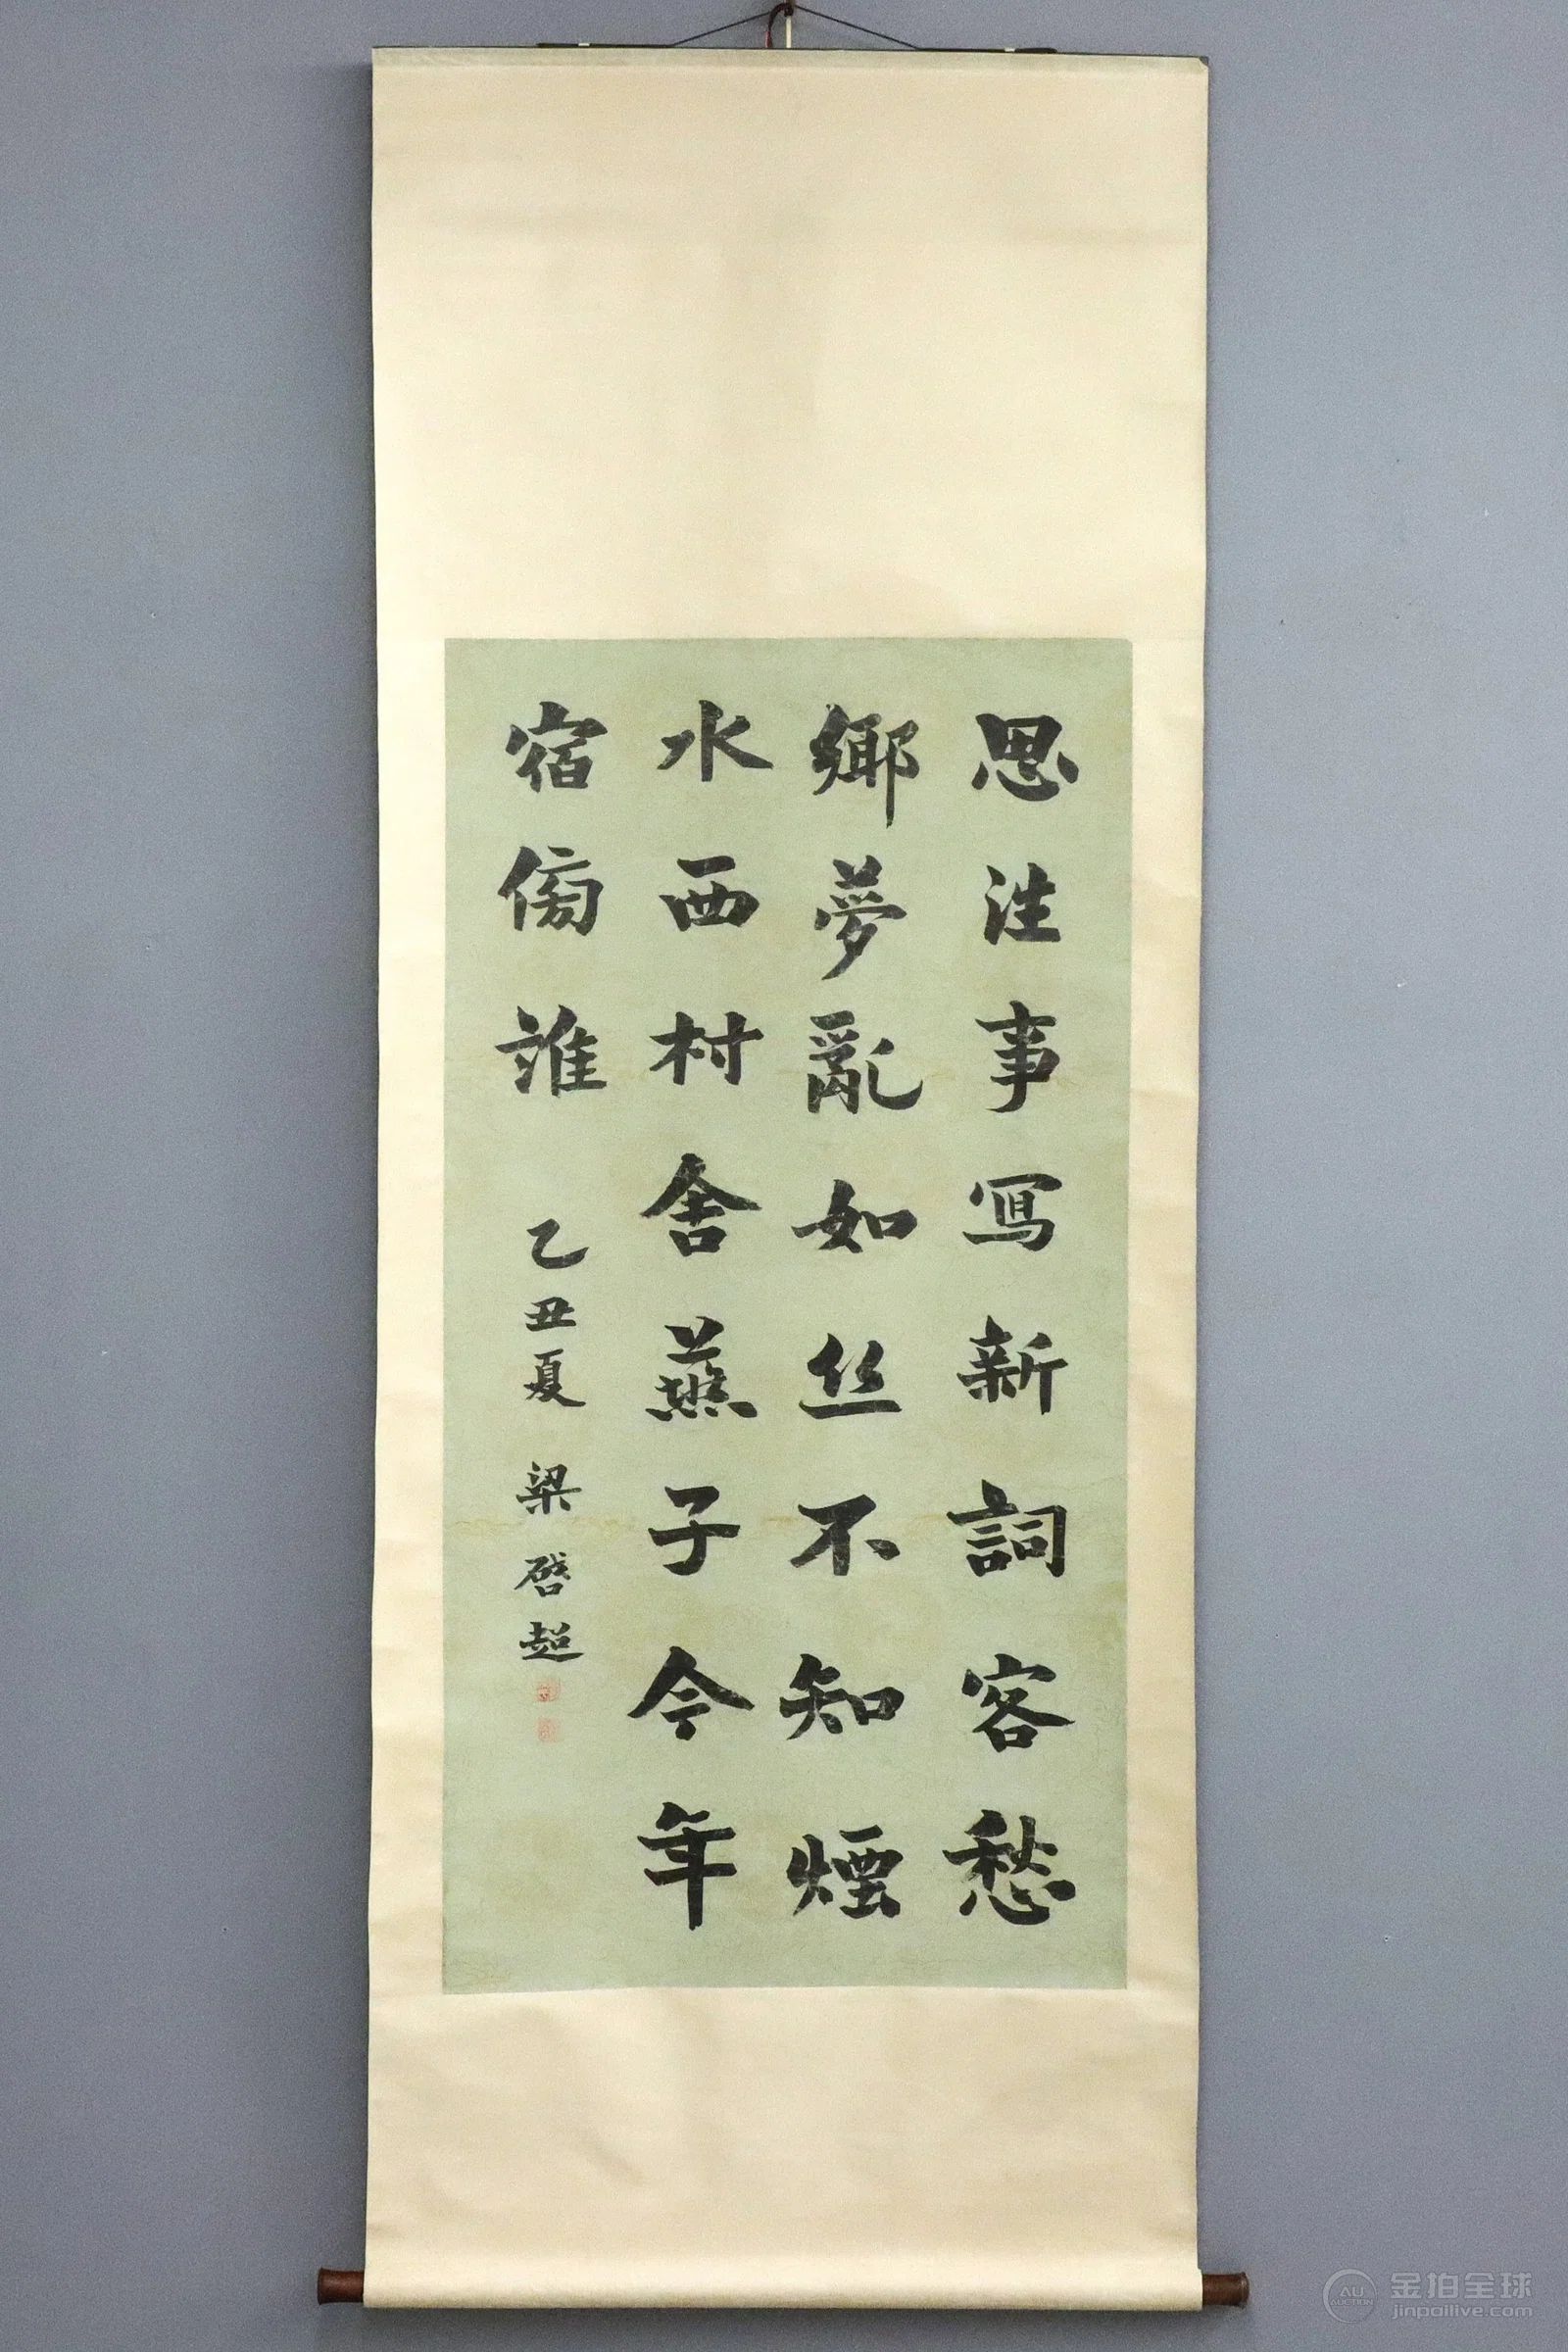 思往事寫新詞客愁
鄉夢亂如丝不知煙
水西村舍燕子今年
宿傍誰 乙丑夏 梁啓超
金拍全球
jinpailive.com
AU
AUCTION